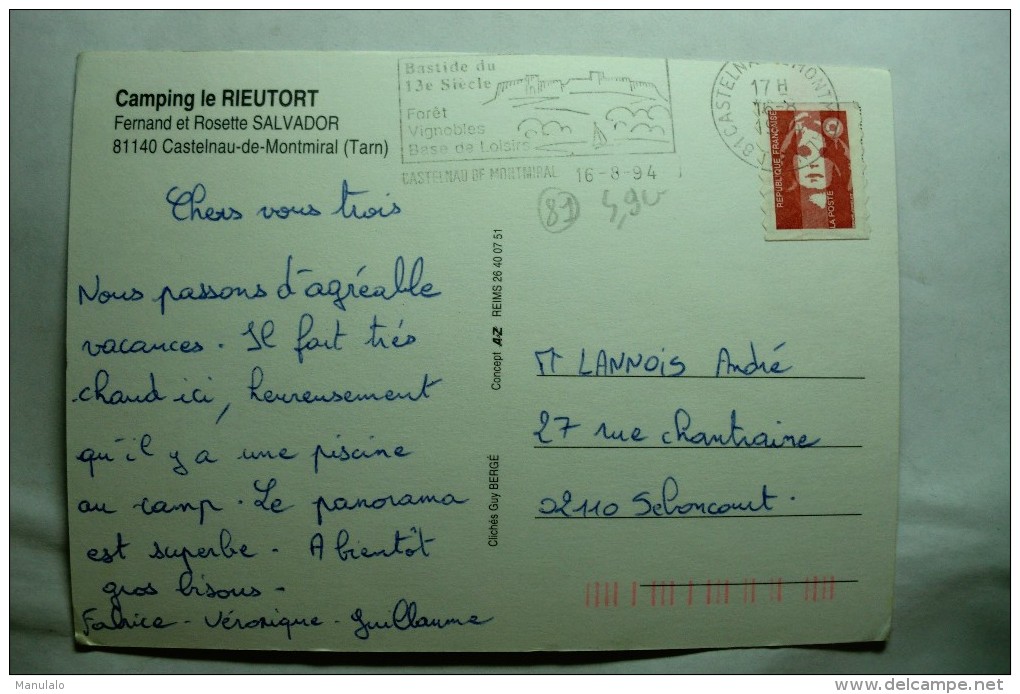 Camping le RIEUTORT
Fernand et Rosette SALVADOR
81140 Castelnau-de-Montmiral (Tarn)
Bastide du
13e Siècle
Forêt
Vignobles
Base de Loisirs
CASTELNAU DE MONTMIRAL 16-8-94
17 H
REPUBLIQUE FRANÇAISE
LA POSTE
81
Chers vous trois
Nous passons d'agréable
vacances. Il fait très
chaud ici, heureusement
qu'il y a une piscine
au camp. Le panorama
est superbe. A bientôt
gros bisous -
Fabrice - Véronique - Guillaume
Clichés Guy BERGÉ Concept A-Z REIMS 26 40 07 51
M LANNOIS André
27 rue chantraine
02110 Seboncourt.
Manulalo
delcampe.net